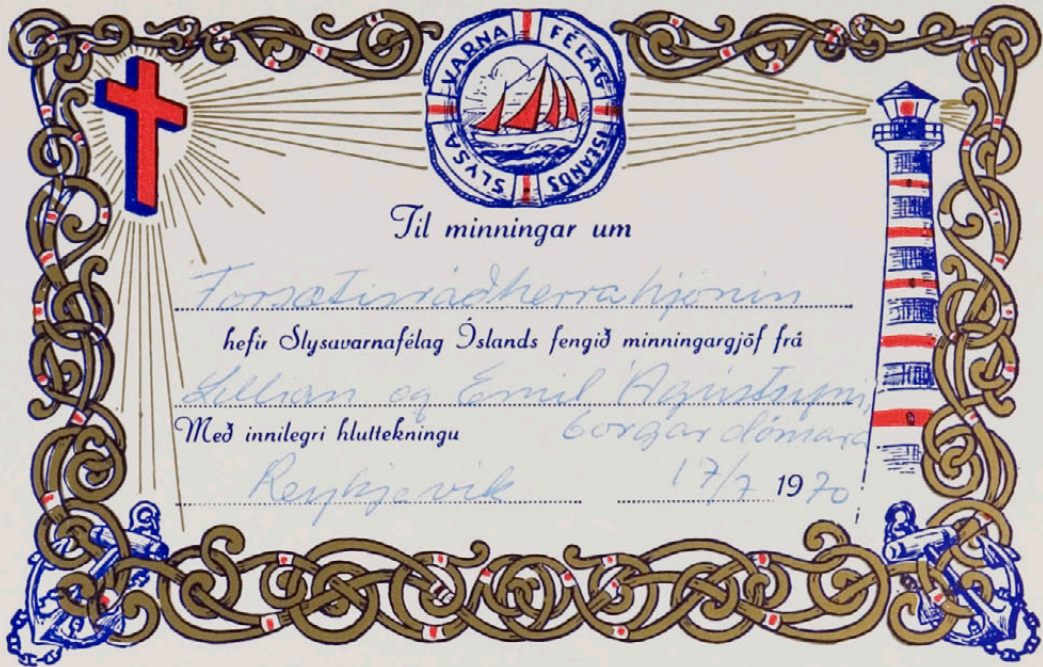 SLYSA VARNA FÉLAG ÍSLANDS
Til minningar um
Forsætisráðherrahjónin
hefir Slysavarnafélag Íslands fengið minningargjöf frá
Lillian og Emil Ágústssyni,
borgardómara
Með innilegri hluttekningu
Reykjavík 17/7 1970